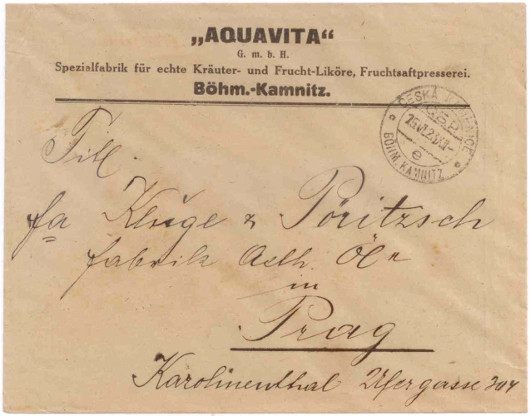 „AQUAVITA“
G. m. b. H.
Spezialfabrik für echte Kräuter- und Frucht-Liköre, Fruchtsaftpresserei.
Böhm.-Kamnitz.
ČESKÁ KAMENICE
ČSP
e
BÖHM. KAMNITZ
Titl.
fa Kluge & Pöritzsch
fabrik Aeth. Öle
in
Prag
Karolinenthal Ufergasse 304